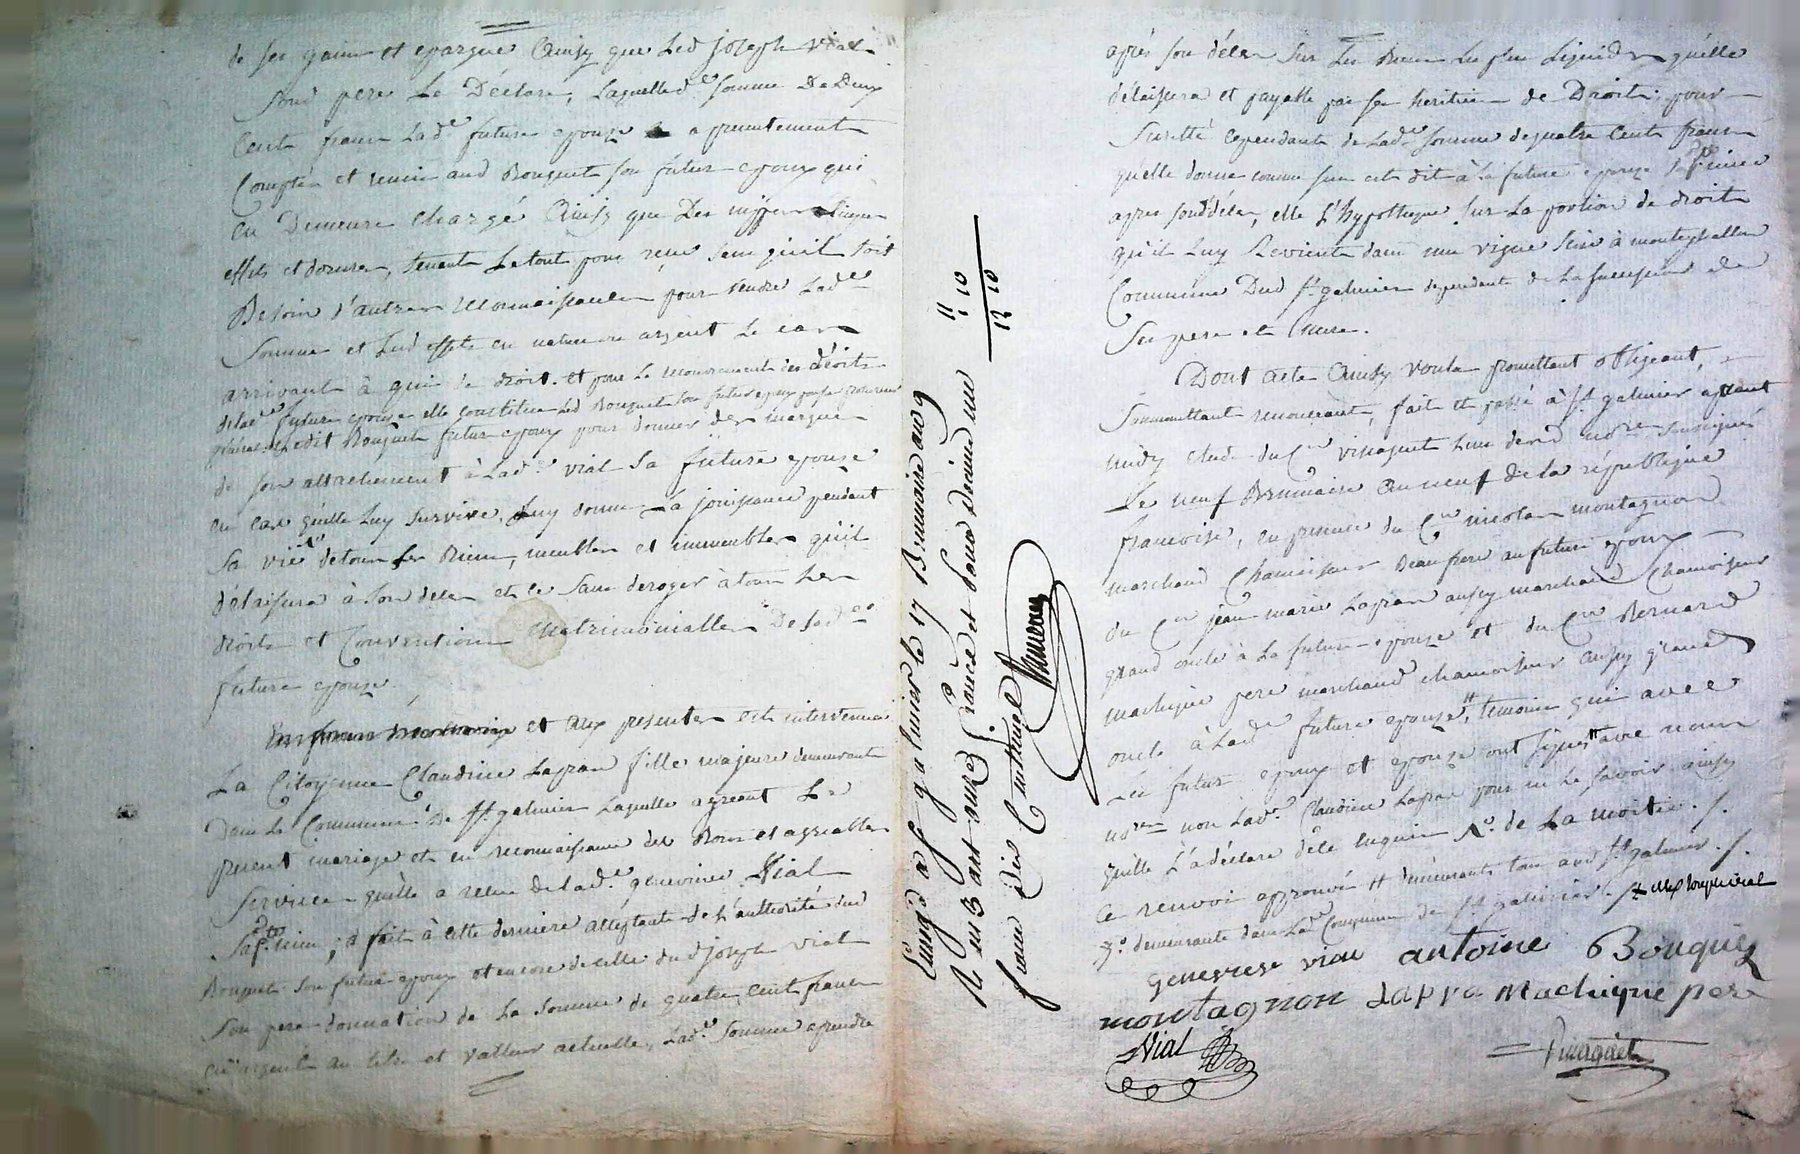 de ses gains et epargne Ainsy que led joseph vial
Sond pere Le Déclare, Laquelle de somme De Deux
Cent francs Lade future epouze a presentement
Comptés et remis aud Bouquet son futur epoux qui
en Demeure Chargé Ainsy que Des nippes
effets et dorures, tenant Le tout pour reçu sans quil soit
Besoin d'autres reconnaissances pour rendre Lade
Somme et lesd effets en nature ou argent Le cas
arrivant à qui de droit. et pour le recouvrement des droits
de lade future epouze elle constitue led Bouquet son futur epoux pour son procureur
general. Ledit Bouquet futur epoux pour donner des marques
de son attachement à Lade vial Sa future epouze
en cas quelle Luy Survive, Luy donne La jouissance pendant
Sa vie de tous Ses Biens, meubles et immeubles qu'il
délaissera à Son déces et ce Sans deroger à tous Les
droits et Conventions Matrimonialles De Lade
future epouze.
et aux presentes est intervenue
La Citoyenne Claudine Lapran fille majeure demeurante
dans La Commune De St galmier Laquelle agréant Le
present mariage et en reconnaissance des Bons et agreables
Services quelle a reçu de lade genevieve Vial
Sa pte niece, a fait à cette derniere de L'authorité dud
Bouquet Son futur epoux et encore de celle dud joseph vial
Son pere donnation de La somme de quatre cent francs
en argent au titre et valleur actuelle, Lade Somme a prendre
Enregé à St galmier le 17 Brumaire an 9
Reçu 3 art onze francs et pour decime un
franc dix Centimes
11 10
1 10
12 10
après son décès sur Les Biens les plus liquides qu'elle
délaissera et payable par ses heritiers de Droit; pour
Sureté Cependant de Lade Somme de quatre Cent francs
qu'elle donne comme sus est dit à la future epouze Sa pte niece
apres sond déces, elle L'hypotheque sur La portion de droits
qu'il Luy Revient dans une vigne Size à
Commune Dud St galmier dependante de La Succession de
Ses pere et Mere.
Dont acte Ainsy voulu promettant obligeant,
Soumettant renonceant, fait et passé à St galmier avant
midy etude du Cen vinagnet L'un desd nores Soussignés
Le neuf Brumaire an neuf de la république
francoise, en presence du Cen nicolas montagnon
marchand Chamoiseur Beaufrere au futur epoux
du Cen jean marie Lapran aussy marchand Chamoiseur
grand oncle à La future epouze et du Cen Bernard
machique pere marchand chamoiseur aussy grand
oncle à Lade future epouze, temoins qui avec
Les futur epoux et epouze ont signés avec nous
nores non Lade Claudine Lapran pour ne Le savoir ainsy
qu'elle L'a déclaré
ce renvoi approuvé demeurants tous aud St galmier.
demeurante dans Lade Commune de St galmier.
genevieve vial antoine Bouquet
montagnon Lapra Machique pere
Vial
Vinagnet